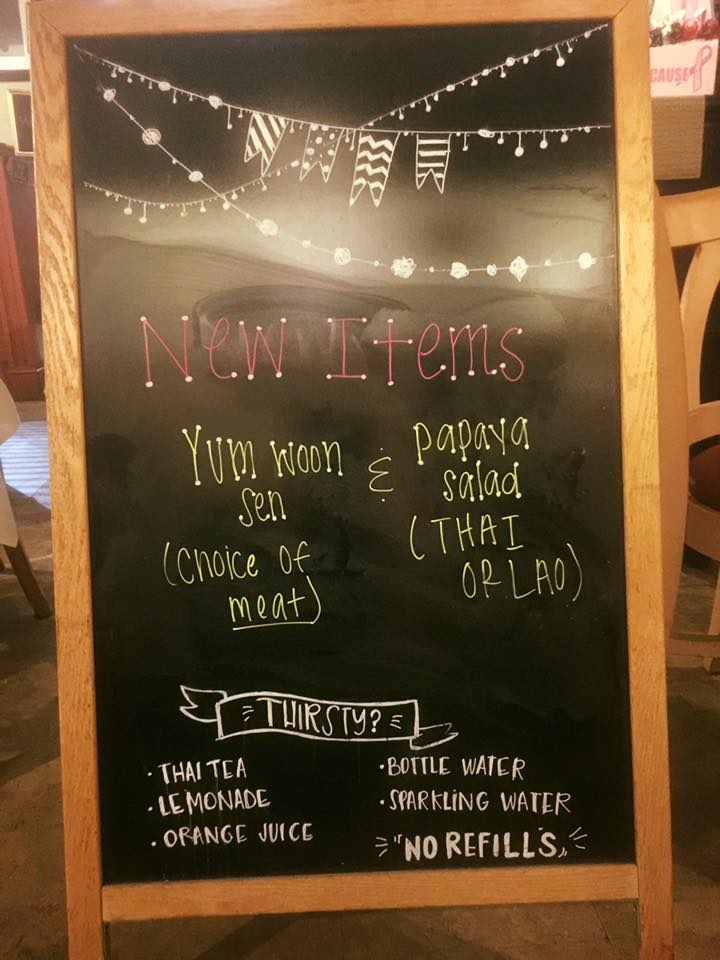 CAUSE
New Items
Yum Woon
Sen
(Choice of
meat)
&
Papaya
Salad
(THAI
OR LAO)
THIRSTY?
· THAI TEA
· LEMONADE
· ORANGE JUICE
· BOTTLE WATER
· SPARKLING WATER
"NO REFILLS"